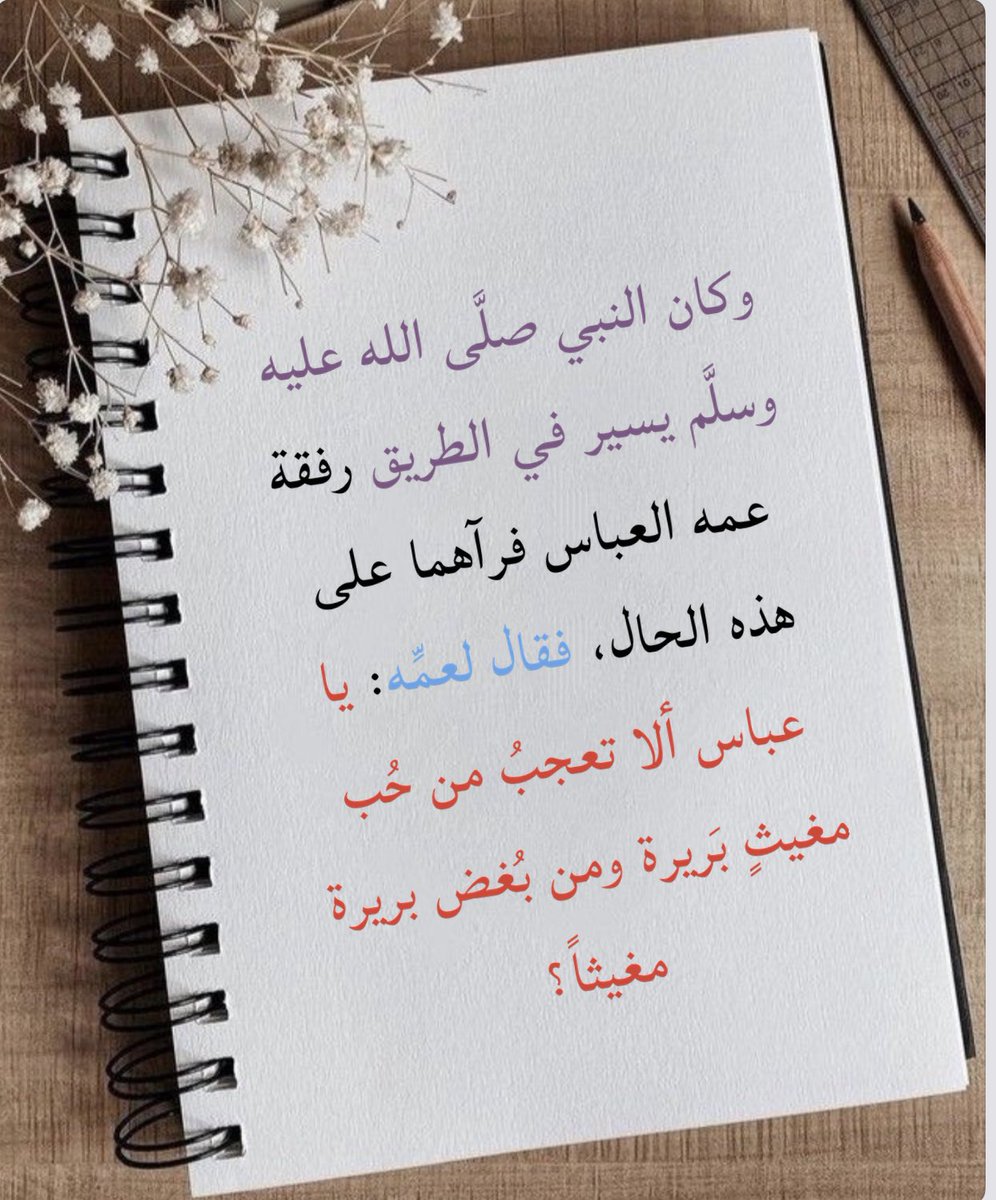 وكان النبي صلَّى الله عليه
وسلَّم يسير في الطريق رفقة
عمه العباس فرآهما على
هذه الحال، فقال لعمِّه: يا
عباس ألا تعجبُ من حُب
مغيثٍ بَريرة ومن بُغض بريرة
مغيثاً؟